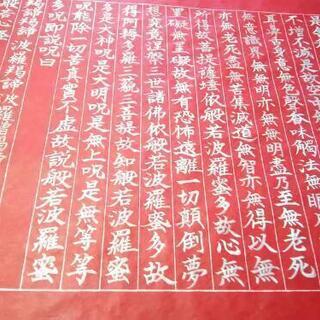 不增不減是故空
耳鼻舌身意無色聲香味觸法無眼
無意識界無無明亦無無明盡乃至無老死
亦無老死盡無苦集滅道無智亦無得以無
所得故菩提薩埵依般若波羅蜜多故心無
罣礙無罣礙故無有恐怖遠離一切顛倒夢
想究竟涅槃三世諸佛依般若波羅蜜多故
得阿耨多羅三藐三菩提故知般若波羅蜜
多是大神呪是大明呪是無上呪是無等等
呪能除一切苦真實不虛故說般若波羅蜜
多呪即說呪曰
羯諦波羅羯諦波羅僧羯